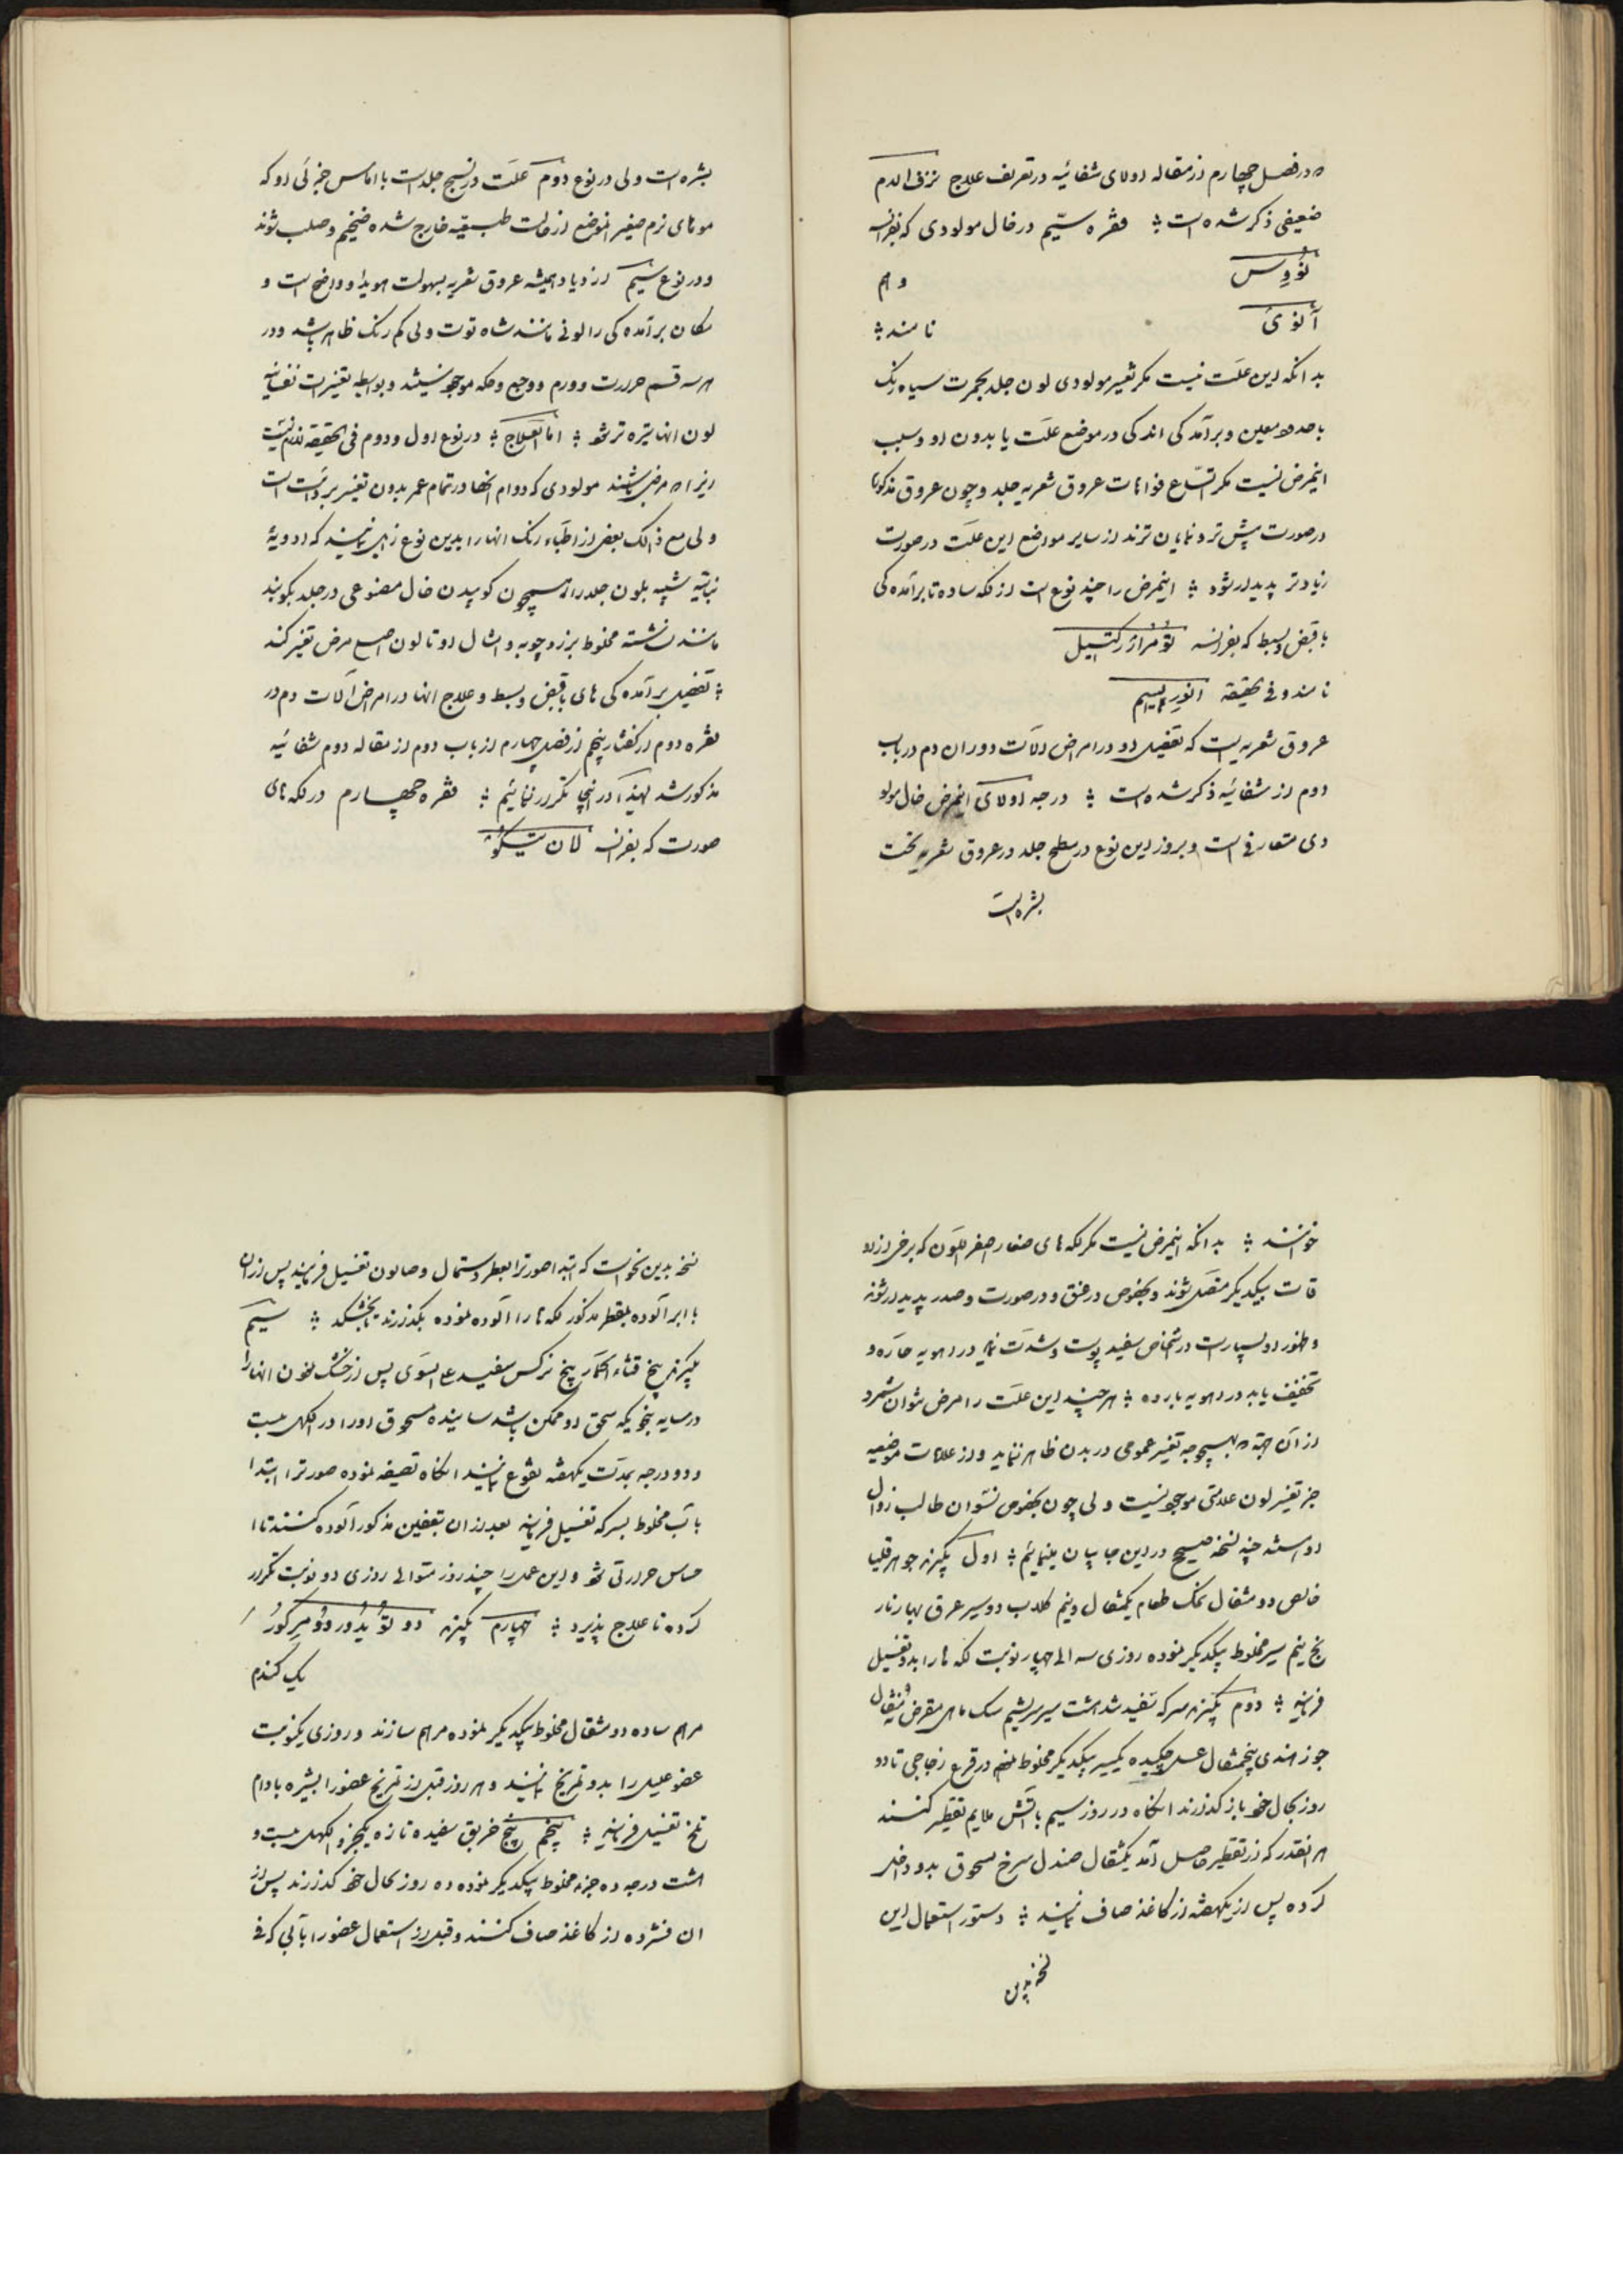 که در فصل چهارم از مقاله اولای شفائیه در تعریف علاج نزف الدم
ضعیفی ذکر شده است ؛ فقره سیّم در خال مولودی که بفرانسه
نوُوس و ام
آنوی نامند ؛
بدانکه این علّت نیست مکر تغییر مولودی لون جلد بحمرت سیاه رنک
با حدود معین و برآمدکی اندکی در موضع علّت یا بدون او و سبب
اینمرض نیست مکر اتّساع فوهات عروق شعریه جلد و چون عروق مذکوره
در صورت بیش تر و نمایان ترند از سایر مواضع این علّت در صورت
زیادتر پدیدار شود ؛ اینمرض را چند نوع است از لکه ساده تا برآمده کی
با قبض و بسط که بفرانسه تومر ارکتیل
نامند و فی الحقیقة انوریسم
عروق شعریه است که تفصیل او در امراض آلات دوران دم در باب
دوم از شفائیه ذکر شده است ؛ درجه اولای اینمرض خال مولو
دی متعارفی است و بروز این نوع در سطح جلد در عروق شعریه تحت
بشره است
بشره است ولی در نوع دوّم علّت در نسیج جلد است با اماس جزئی او که
موهای نرم صغیر الموضع از حالت طبیعیه خارج شده ضخیم و صلب شوند
و در نوع سیّم ازدیاد همیشه عروق شعریه بسهولت هویدا و واضح است و
مکان برآمده کی را لونی مانند شاه توت ولی کم رنک ظاهر باشد و در
هر سه قسم حرارت و ورم و وجع و حکه موجود نیستند و بواسطه تغییرات نفسانیه
لون انها تیره تر شود ؛ امّا العلاج ؛ در نوع اول و دوم فی الحقیقة لازم نیست
زیرا که مرضی باشند مولودی که دوام انها در تمام عمر بدون تغییر برقرار است
ولی مع ذالک بعضی از اطبّاء رنک انها را بدین نوع زایل نمایند که ادویهٔ
نباتیه شبیه بلون جلد را همچون کوبیدن خال مصنوعی در جلد بکوبند
مانند نشاسته مخلوط بزردچوبه و امثال او تا لون اصلی مرض تغییر کند
؛ تفصیل برآمده کی های با قبض و بسط و علاج انها در امراض آلات دم در
فقره دوم از کفتار پنجم از فصل چهارم از باب دوم از مقاله دوم شفائیه
مذکور شد لهذا در اینجا تکرار ننمائیم ؛ فقره چهارم در لکه های
صورت که بفرانسه لانتیکو
خوانند ؛ بدانکه اینمرض نیست مکر لکه های صغار اصفر اللّون که برخی از او
قات بیکدیکر متصل شوند و بخصوص در عنق و در صورت و صدر پدیدار شوند
و ظهور او بسیار است در اشخاص سفید پوست و شدّت نماید در اهویه حارّه و
تخفیف یابد در اهویه بارده ؛ هر چند این علّت را مرض نتوان شمرد
از آن جهة که بهیچوجه تغییر عمومی در بدن ظاهر ننماید و از علامات موضعیه
جز تغییر لون علامتی موجود نیست ولی چون بخصوص نسوان طالب زوال
او هستند چند نسخه صحیح در این جا بیان مینمائیم ؛ اول بکیرند جوهر قلیا
خالص دو مثقال نمک طعام یکمثقال و نیم کلاب دو سیر عرق بهار نار
نج نیم سیر مخلوط بیکدیکر نموده روزی سه الی چهار نوبت لکه ها را بدو تغسیل
فرمایند ؛ دوّم بکیرند سرکه سفید شد هشت سیر سریشم سک ماهی مقرض دو مثقال
جوز هندی پنجمثقال عسل چکیده یکسیر بیکدیکر مخلوط نموده در قرع زجاجی تا دو
روز بحال خود باز کذارند انکاه در روز سیم با آتش ملایم تقطیر کنند
هر انقدر که از تقطیر حاصل آمد یکمثقال صندل سرخ مسحوق بدو داخل
کرده پس از یکهفته از کاغذ صاف نمایند ؛ دستور استعمال این
نسخه بدین
نسخه بدین نحو است که ابتدا صورترا بعطر دستمال و صابون تغسیل فرمایند پس از ان
با ابر آلوده بمقطر مذکور لکه ها را آلوده نموده بکذارند تا بخشکد ؛ سیّم
بکیرند بیخ قثاء الحمار بیخ نرکس سفید علی السوی پس از خشک نمودن انها را
در سایه بنحویکه سحق او ممکن باشد سائیده مسحوق او را در الکهل بیست
و دو درجه بمدّت یکهفته نقوع نمایند انکاه تصفیه نموده صورترا ابتدا
با آب مخلوط بسرکه تغسیل فرمایند بعد از ان بتعفین مذکور آلوده کنند تا ا
حساس حرارتی شود و این عمل را چند روز متوالی روزی دو نوبت تکرار
کرده تا علاج پذیرد ؛ چهارم بکیرند دو تو یدور دو مرکور
یک کندم
مرهم ساده دو مثقال مخلوط بیکدیکر نموده مرهم سازند و روزی یکنوبت
عضو علیل را بدو تمریخ نمایند و هر روز قبل از تمریخ عضو را بشیره بادام
تلخ تغسیل فرمایند ؛ پنجم بیخ خربق سفید تازه یکجزو الکهل بیست و
هشت درجه ده جزء مخلوط بیکدیکر نموده ده روز بحال خود کذارند پس از
ان فشرده از کاغذ صاف کنند و قبل از استعمال عضو را بآبی که فی